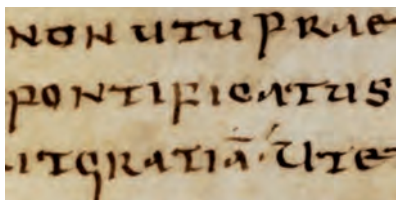 non utu prae
pontificatus
it gratiā· ute